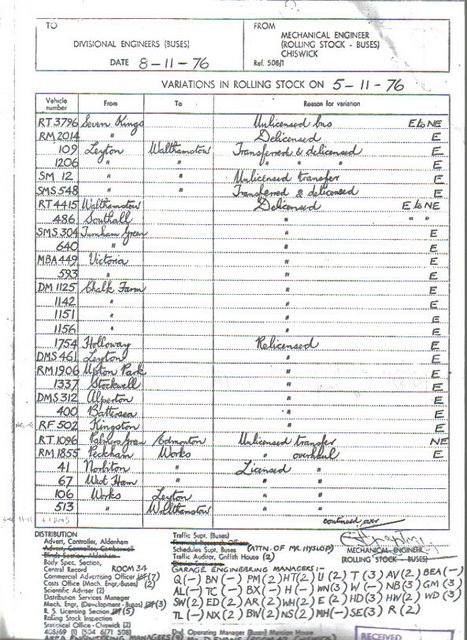 TO
DIVISIONAL ENGINEERS (BUSES)
DATE 8-11-76
FROM
MECHANICAL ENGINEER
(ROLLING STOCK - BUSES)
CHISWICK
Ref. 508/1
VARIATIONS IN ROLLING STOCK ON 5-11-76
Vehicle number From To Reason for variation
RT 3796 Seven Kings Unlicensed bus E to NE
RM 2014 " Delicensed E
109 Leyton Walthamstow Transferred & delicensed E
1206 " " " " " E
SM 12 " " Unlicensed transfer E
SMS 548 " " Transferred & delicensed E
RT 4415 Walthamstow Delicensed E to NE
486 Southall " " "
SMS 304 Turnham Green " E
640 " " E
MBA 449 Victoria " E
593 " " E
DM 1125 Chalk Farm " E
1142 " " E
1151 " " E
1156 " " E
1754 Holloway Relicensed E
DMS 461 Leyton " E
RM 1906 Upton Park " E
1337 Stockwell " E
DMS 312 Alperton " E
400 Battersea " E
RF 502 Kingston " E
RT 1096 Palmers Green Edmonton Unlicensed transfer NE
RM 1855 Peckham Works " overhaul E
41 Norbiton " Licensed " E
67 West Ham " " E
106 Works Leyton " E
513 " Walthamstow " E
continued over
DISTRIBUTION
Advert. Controller, Aldenham
Body Spec. Section,
Central Record ROOM 34
Commercial Advertising Officer (7)
Costs Office (Mech. Engr.-Buses) (2)
Scientific Adviser (2)
Distribution Services Manager
Mech. Engr. (Development - Buses) (3)
R. S. Licensing Section (5)
Rolling Stock Inspection
Statistical Office - Chiswick (2)
Traffic Supt. (Buses)
Schedules Supt. Buses (ATTN. OF MR. HYSLOP)
Traffic Auditor, Griffith House (2)
MECHANICAL ENGINEER
(ROLLING STOCK - BUSES)
GARAGE ENGINEERING MANAGERS:-
Q(-) BN(-) PM(2) HT(2) U(2) T(3) AV(2) BEA(-)
AL(-) TC(-) BX(-) H(-) WN(3) W(-) NB(3) GM(3)
SW(2) ED(2) AR(2) WH(2) E(2) HD(3) HW(2) WD(3)
TL(-) NX(2) BW(2) NS(2) MH(-) SE(3) R(2)
RECEIVED